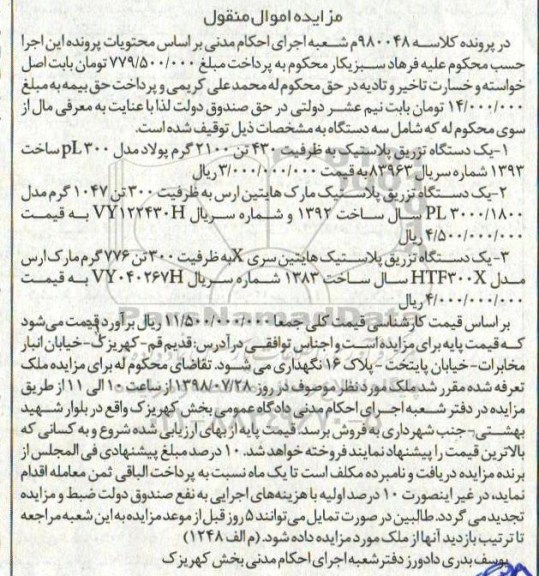 مزایده اموال منقول
در پرونده کلاسه ۹۸۰۰۴۸م شعبه اجرای احکام مدنی بر اساس محتویات پرونده این اجرا
حسب محکوم علیه فرهاد سبزیکار محکوم به پرداخت مبلغ ۷۷۹/۵۰۰/۰۰۰ تومان بابت اصل
خواسته و خسارت تاخیر و تادیه در حق محکوم له محمدعلی کریمی و پرداخت حق بیمه به مبلغ
۱۴/۰۰۰/۰۰۰ تومان بابت نیم عشر دولتی در حق صندوق دولت لذا با عنایت به معرفی مال از
سوی محکوم له که شامل سه دستگاه به مشخصات ذیل توقیف شده است.
۱-یک دستگاه تزریق پلاستیک به ظرفیت ۴۳۰ تن ۲۱۰۰ گرم پولاد مدل pL۳۰۰ ساخت
۱۳۹۳ شماره سریال ۸۳۹۶۳ به قیمت ۳/۰۰۰/۰۰۰/۰۰۰ ریال
۲-یک دستگاه تزریق پلاستیک مارک هایتین ارس به ظرفیت ۳۰۰ تن ۱۰۴۷ گرم مدل
PL ۳۰۰۰/۱۸۰۰ سال ساخت ۱۳۹۲ و شماره سریال VY۱۲۲۴۳۰H به قیمت
۴/۵۰۰/۰۰۰/۰۰۰ ریال
۳-یک دستگاه تزریق پلاستیک هایتین سری X به ظرفیت ۳۰۰ تن ۷۷۶ گرم مارک ارس
مدل HTF۳۰۰X سال ساخت ۱۳۸۳ شماره سریال VY۰۴۰۲۶۷H به قیمت
۴/۰۰۰/۰۰۰/۰۰۰ ریال
بر اساس قیمت کارشناسی قیمت کلی جمعا ۱۱/۵۰۰/۰۰۰/۰۰۰ ریال برآورد قیمت می‌شود
که قیمت پایه برای مزایده است و اجناس توافقی در آدرس: قدیم قم-کهریزک-خیابان انبار
مخابرات-خیابان پایتخت-پلاک ۱۶ نگهداری می شود. تقاضای محکوم له برای مزایده ملک
تعرفه شده مقرر شد ملک مورد نظر موصوف در روز ۱۳۹۸/۰۷/۲۸ از ساعت ۱۰ الی ۱۱ از طریق
مزایده در دفتر شعبه اجرای احکام مدنی دادگاه عمومی بخش کهریزک واقع در بلوار شهید
بهشتی-جنب شهرداری به فروش برسد قیمت پایه از بهای ارزیابی شده شروع و به کسانی که
بالاترین قیمت را پیشنهاد نمایند فروخته خواهد شد. ۱۰ درصد مبلغ پیشنهادی فی المجلس از
برنده مزایده دریافت و نامبرده مکلف است تا یک ماه نسبت به پرداخت الباقی ثمن معامله اقدام
نماید، در غیر اینصورت ۱۰ درصد اولیه با هزینه‌های اجرایی به نفع صندوق دولت ضبط و مزایده
تجدید می گردد. طالبین در صورت تمایل می‌توانند ۵ روز قبل از موعد مزایده به این شعبه مراجعه
تا ترتیب بازدید آنها از ملک مورد مزایده داده شود. (م الف ۱۲۴۸)
یوسف بدری دادورز دفتر شعبه اجرای احکام مدنی بخش کهریزک